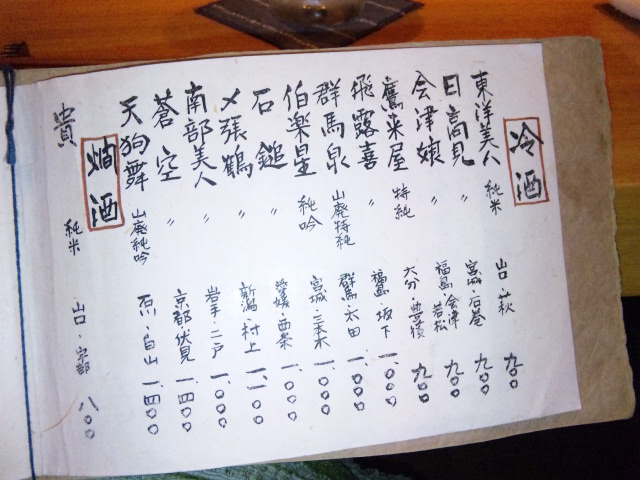 冷酒
東洋美人 純米 山口・萩 九〇〇
日高見 〃 宮城・石巻 九〇〇
会津娘 〃 福島・会津若松 九〇〇
鷹来屋 特純 大分・豊後 九〇〇
飛露喜 〃 福島・坂下 一、〇〇〇
群馬泉 山廃特純 群馬・太田 一、〇〇〇
伯楽星 純吟 宮城・三本木 一、〇〇〇
石鎚 〃 愛媛・西条 一、〇〇〇
〆張鶴 〃 新潟・村上 一、一〇〇
南部美人 〃 岩手・二戸 一、〇〇〇
蒼空 〃 京都・伏見 一、四〇〇
天狗舞 山廃純吟 石川・白山 一、四〇〇
燗酒
貴 純米 山口・宇部 八〇〇